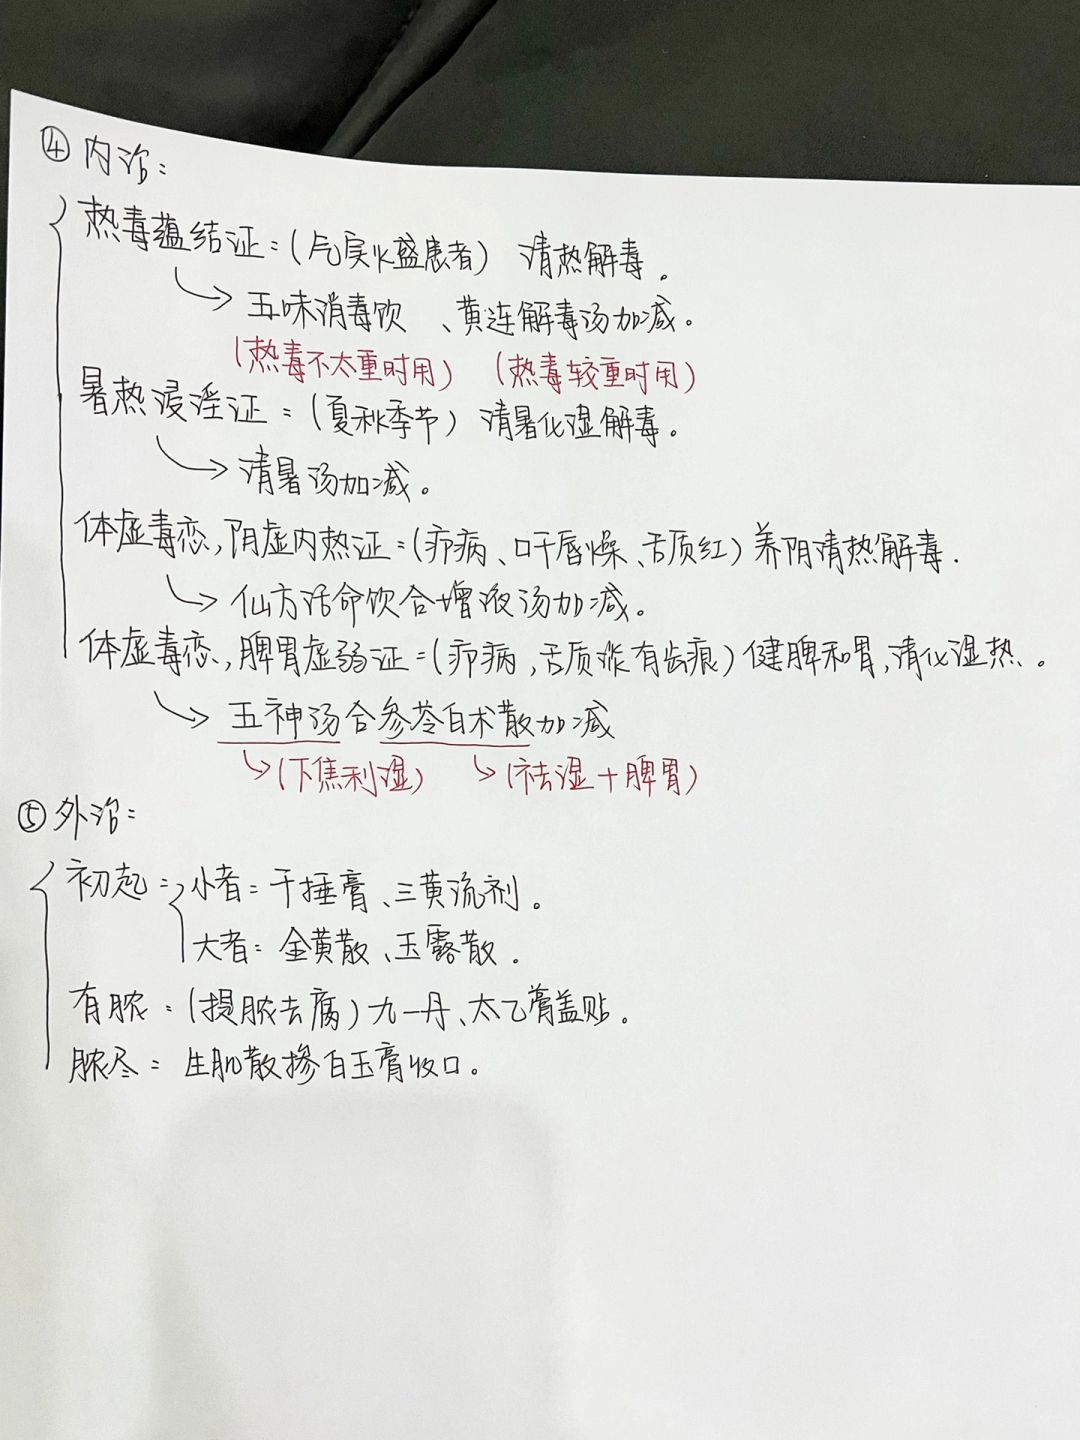 ④ 内治：
热毒蕴结证：（气实火盛患者） 清热解毒。
→ 五味消毒饮 、黄连解毒汤加减。
（热毒不太重时用） （热毒较重时用）
暑热浸淫证：（夏秋季节） 清暑化湿解毒。
→ 清暑汤加减。
体虚毒恋，阴虚内热证：（疖病、口干唇燥、舌质红）养阴清热解毒.
→ 仙方活命饮合增液汤加减。
体虚毒恋，脾胃虚弱证：（疖病，舌质胀有齿痕）健脾和胃，清化湿热。
→ 五神汤合参苓白术散加减
→（下焦利湿） →（祛湿＋脾胃）
⑤ 外治：
初起：小者：千捶膏、三黄洗剂。
大者：金黄散、玉露散.
有脓：（提脓去腐）九一丹、太乙膏盖贴.
脓尽：生肌散掺白玉膏收口。